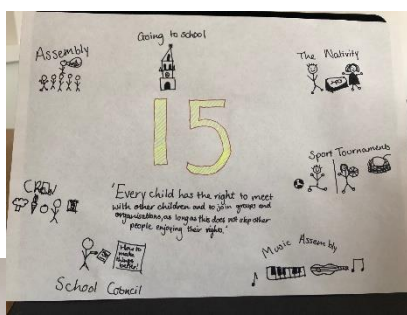 Going to school
Assembly
The Nativity
15
Sport Tournaments
CREW
'Every child has the right to meet
with other children and to join groups and
organisations, as long as this does not stop other
people enjoying their rights.'
How to
make
things
better!
School Council
Music Assembly